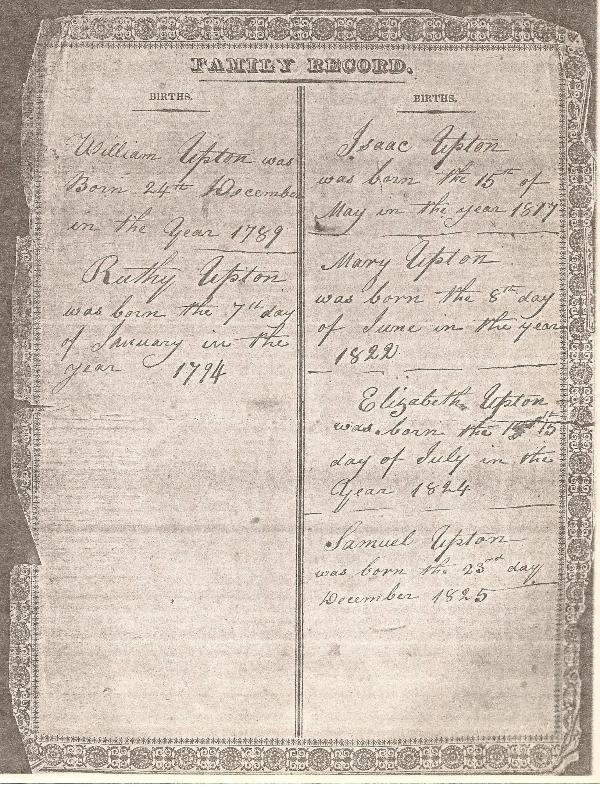 FAMILY RECORD.
BIRTHS.
William Upton was
Born 24th December
in the Year 1789
Ruthy Upton
was born the 7th day
of January in the
year 1794
BIRTHS.
Isaac Upton
was born the 15th of
May in the year 1817
Mary Upton
was born the 8th day
of June in the year
1822
Elizabeth Upton
was born the 15
day of July in the
Year 1824
Samuel Upton
was born the 23rd day
December 1825